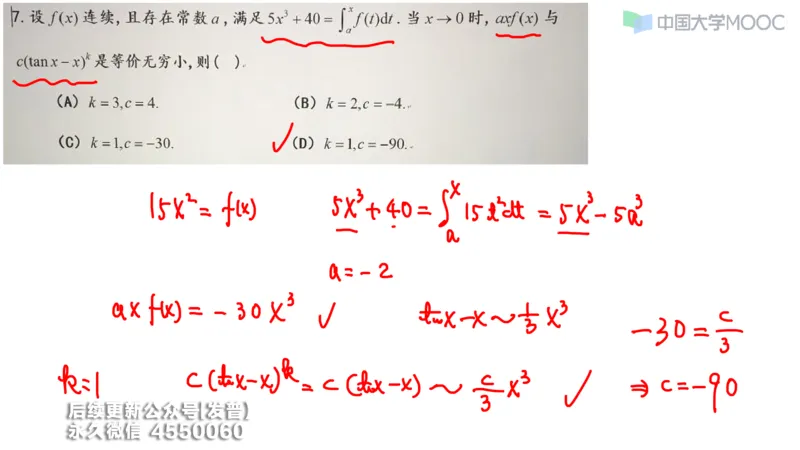 中国大学MOOC
7. 设 f(x) 连续, 且存在常数 a, 满足 5x³ + 40 = ∫ₐˣ f(t)dt. 当 x → 0 时, axf(x) 与
c(tan x − x)ᵏ 是等价无穷小, 则( ).
(A) k = 3, c = 4. (B) k = 2, c = −4.
(C) k = 1, c = −30. (D) k = 1, c = −90.
15x² = f(x) 5x³ + 40 = ∫ₐˣ 15t²dt = 5x³ − 5a³
a = −2
ax f(x) = −30x³ ✓ tanx − x ~ 1/3 x³ −30 = c/3
k=1 c(tanx−x)ᵏ = c(tanx−x) ~ c/3 x³ ✓ ⇒ c = −90
后续更新公众号[发普]
永久微信 4550060